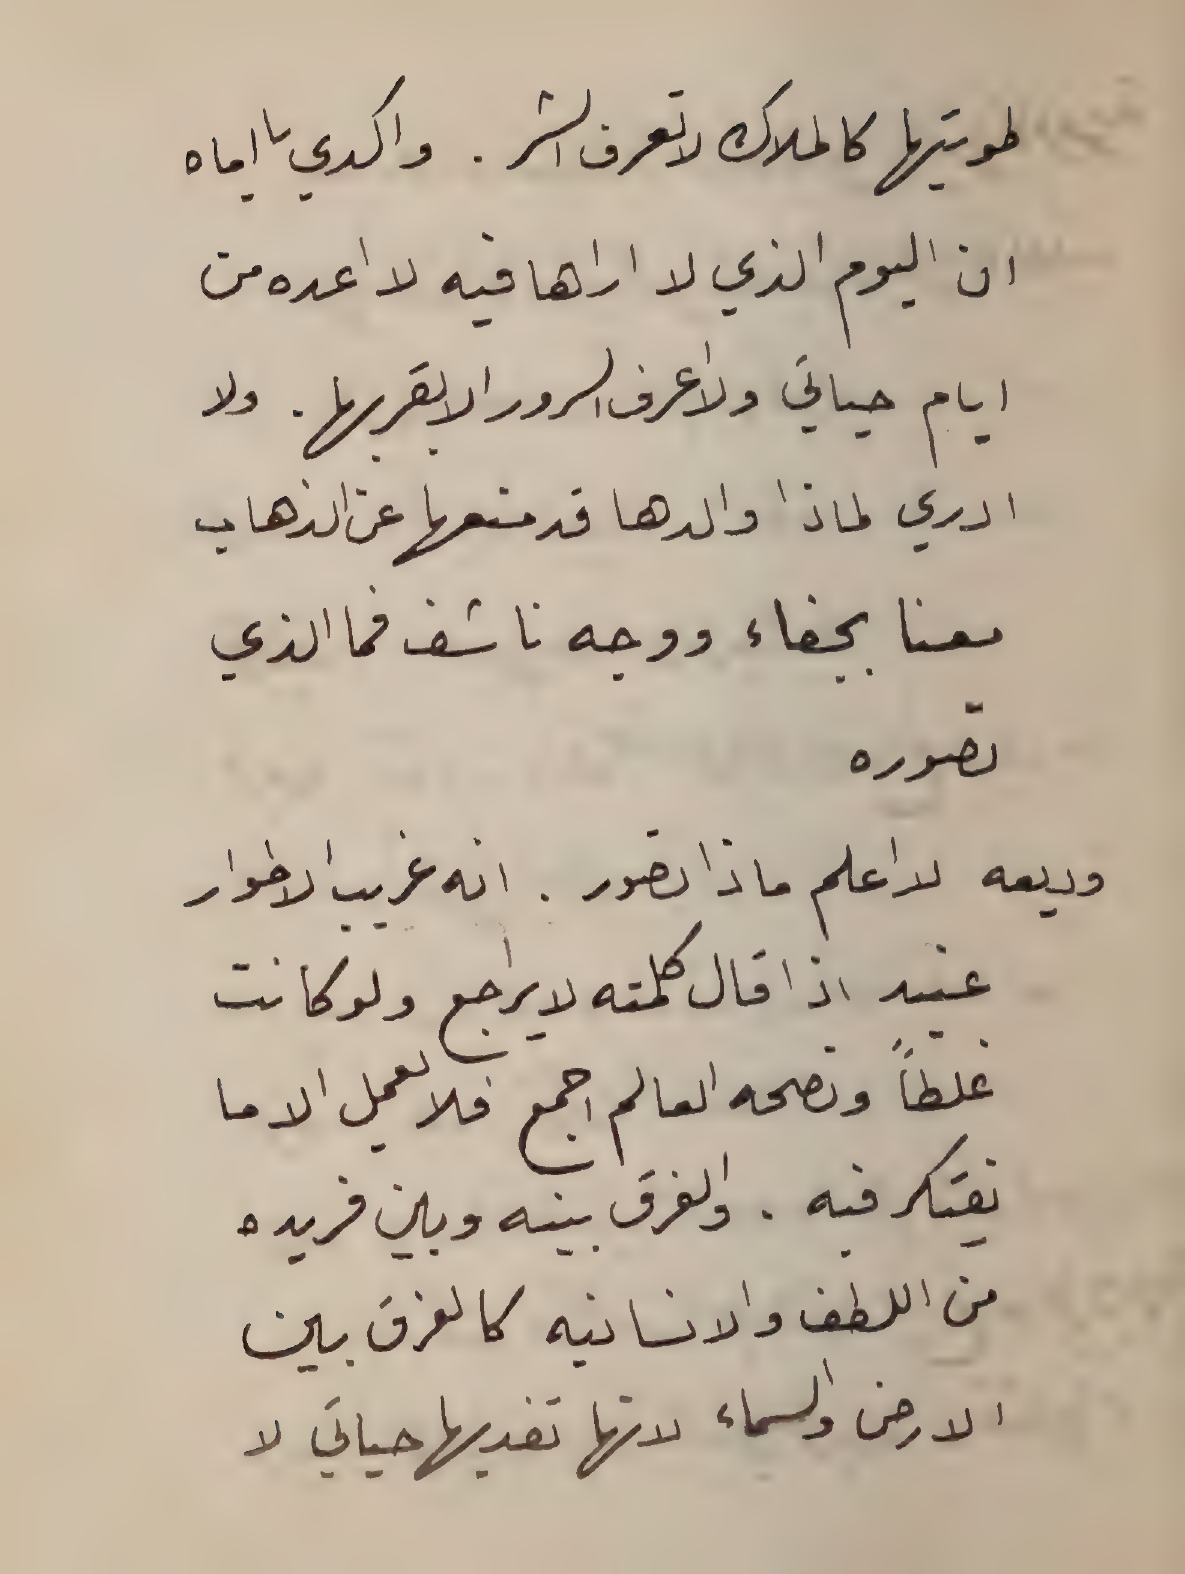 طويتها كالملاك لا تعرف الشر . واكدي يا اماه
ان اليوم الذي لا اراها فيه لا اعده من
ايام حياتي ولا اعرف السرور الا بقربها . ولا
ادري لماذا والدها قد منعها عن الذهاب
معنا بجفاء ووجه ناشف فما الذي
تصوره
وديعه لا اعلم ماذا تصور . انه غريب الاطوار
عنيد اذا قال كلمته لا يراجع ولو كانت
غلطاً ونصحه العالم اجمع فلا يعمل الا ما
يفتكر فيه . والفرق بينه وبين فريده
من اللطف والانسانيه كالفرق بين
الارض والسماء لانها تفديها حياتي لا